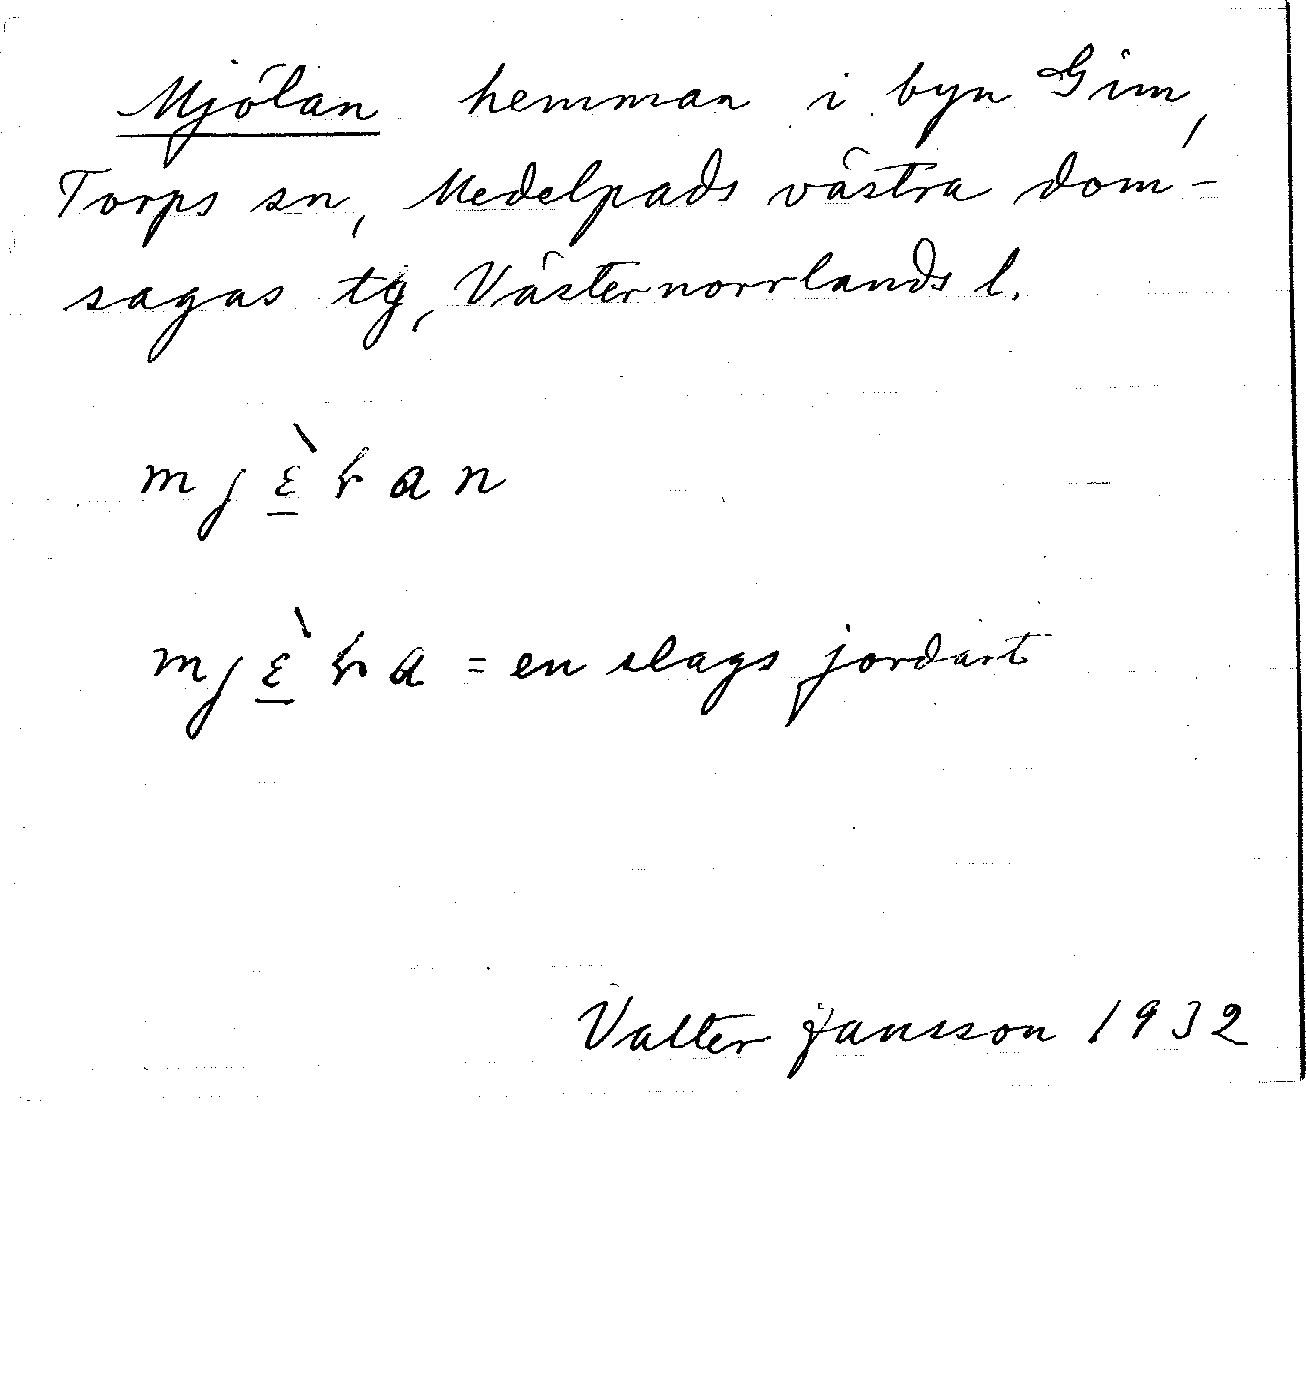 Mjölan hemman i byn Gim,
Torps sn, Medelpads västra dom-
sagas tg, Västernorrlands l.
m j ɛ̱̀ ɽ a n
m j ɛ̱̀ ɽ a = en slags jordart
Valter Jansson 1932